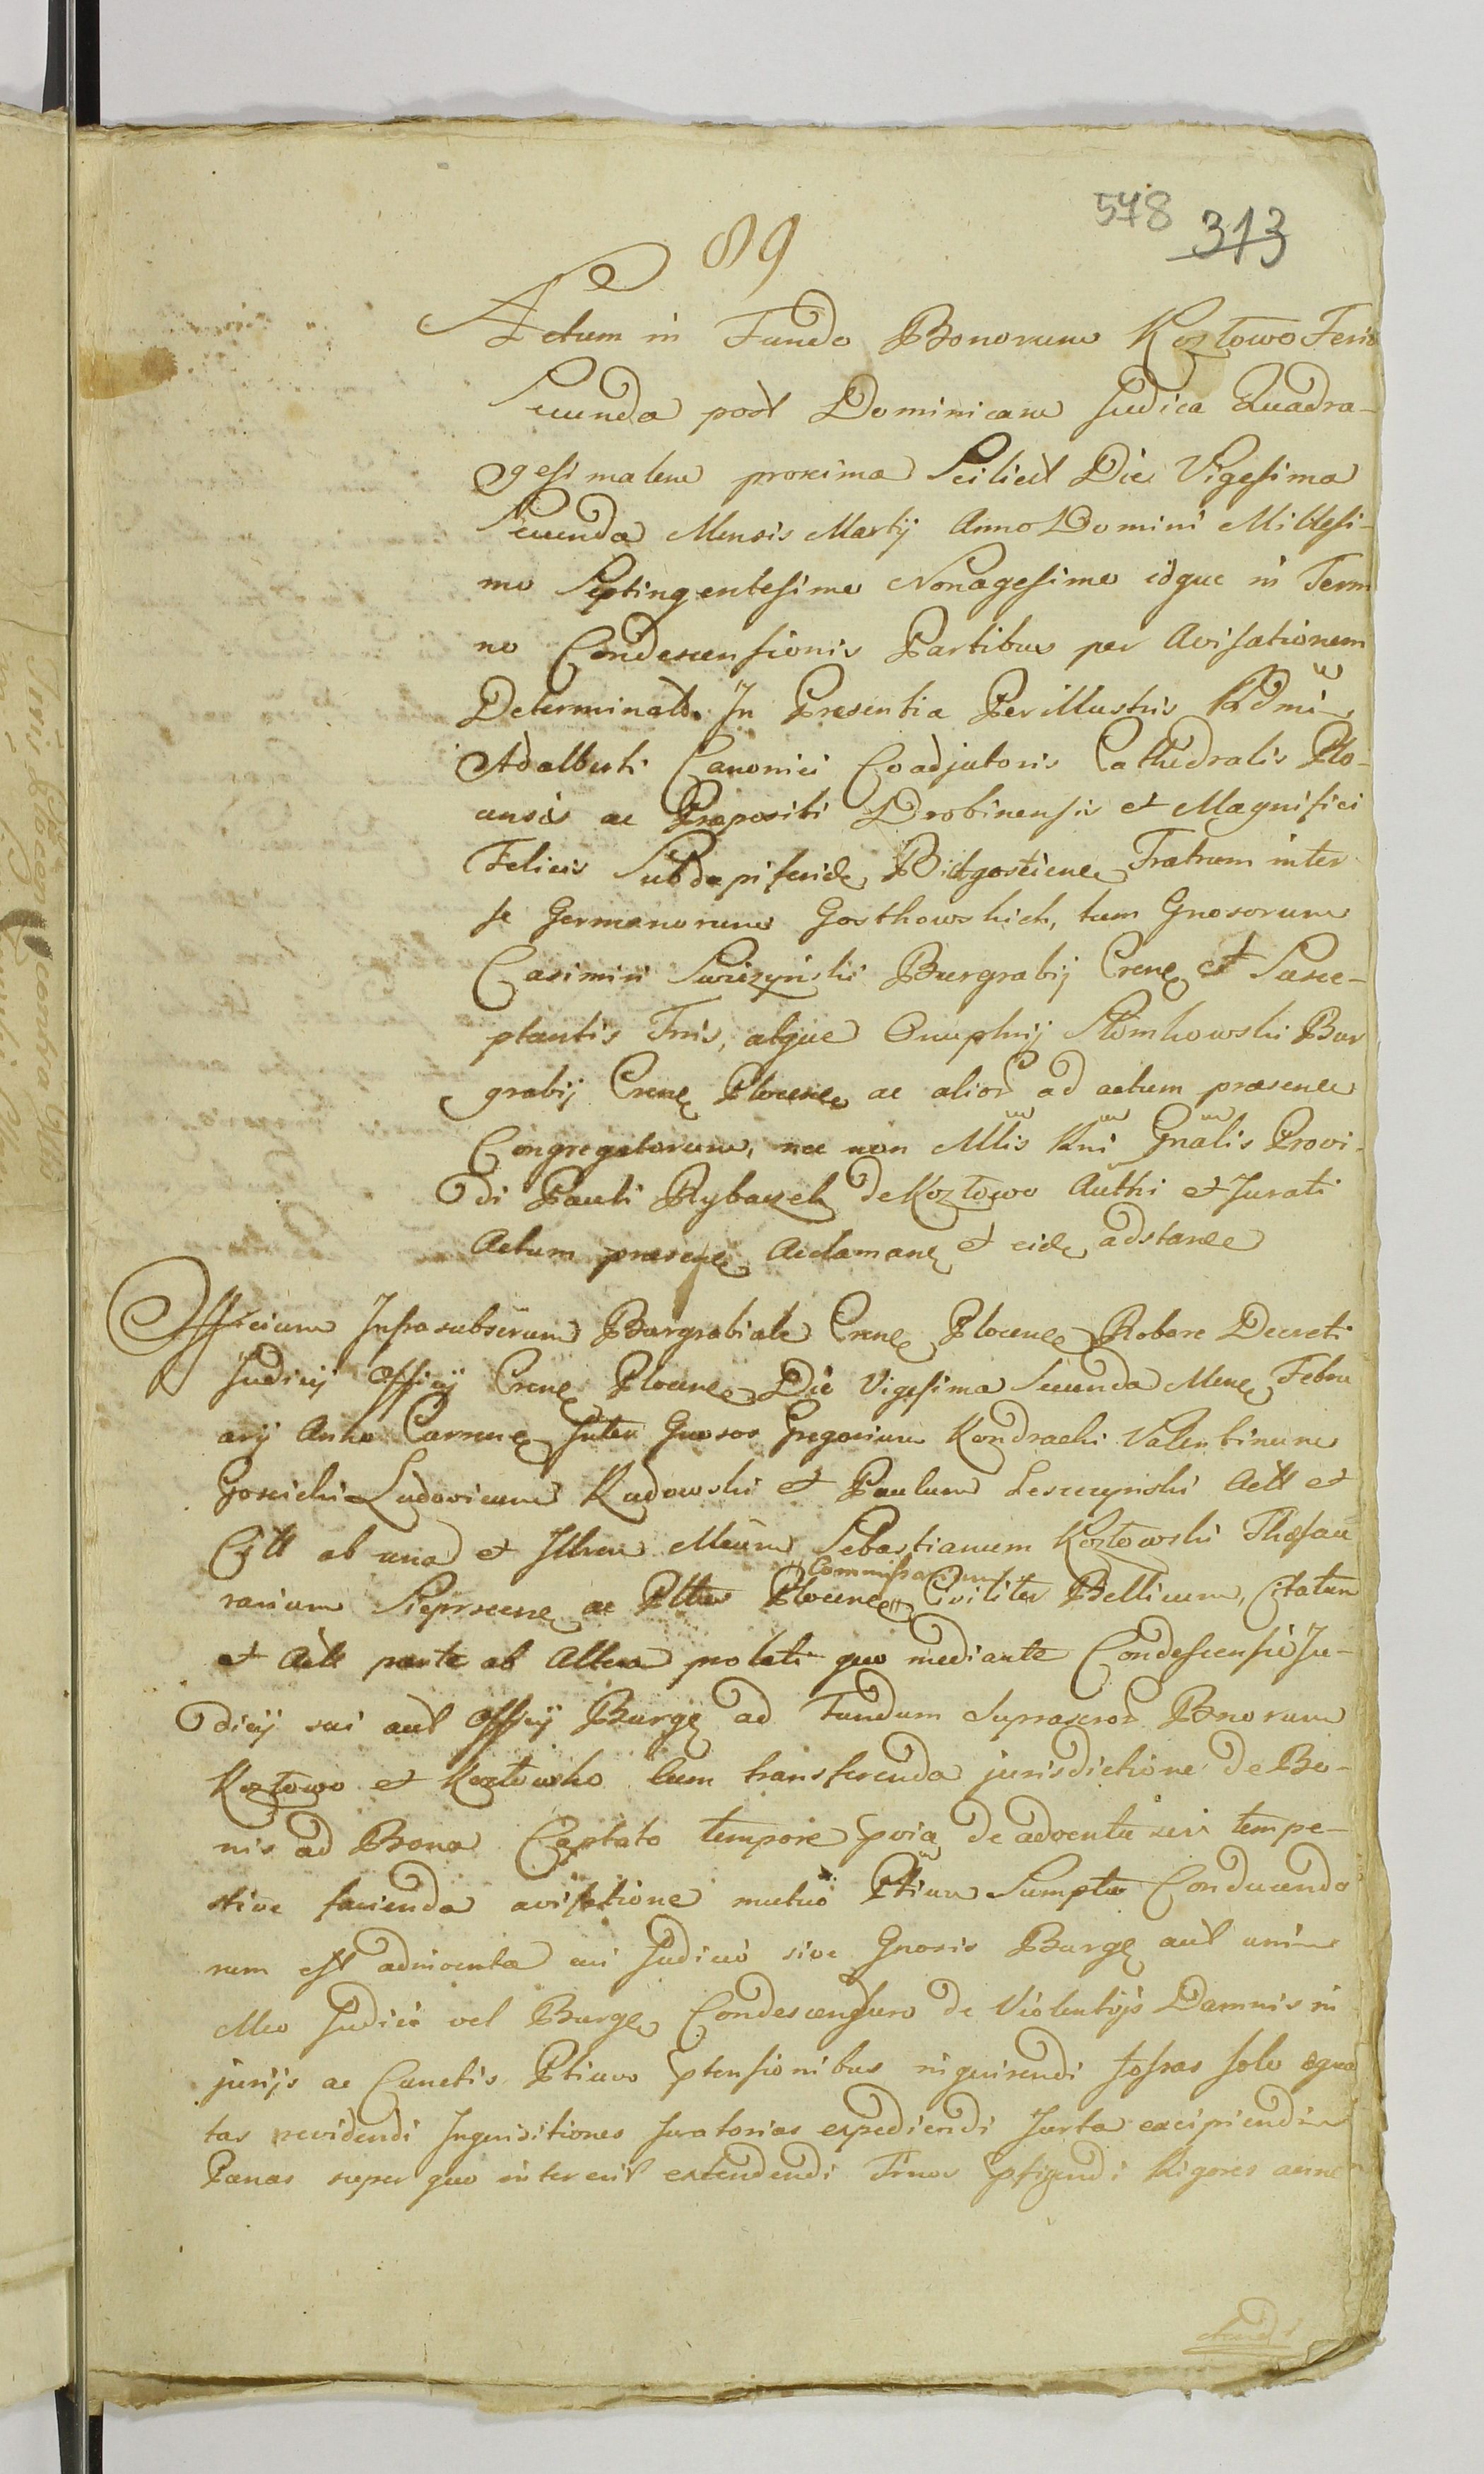 578 313
89
Actum in Fundo Bonorum Kozłowo Feria
Secunda post Dominicam Judica Quadra-
gesimalem proxima Scilicet Die Vigesima
Secunda Mensis Martij Anno Domini Millesi-
mo Septingentesimo Nonagesimo idque in Termi
no Condescensionis Partibus per Avisationem
Determinato. In Presentia Perillustris Rdmi
Adalberti Canonici Coadjutoris Cathedralis Plo-
censis ac Praepositi Drobinensis et Magnifici
Felicis Subdapiferide Bidgosticne Fratrum inter
se Germanorum Gosthowskich, tum Gnosorum
Casimiri Swiezynski Burgrabij Crene et Susce-
ptantis Tnis, atque Onuphrij Slomkowski Bur
grabij Crene Plocene ac alior ad actum praesene
Congregatorum, nec non Mlis Rni Gnalis Provi-
di Pauli Rybaczek de Kozłowo Authi et Jurati
Actum praesene Acclamane et eide adstane
Officium Infrasubscrum Burgrabiale Crene Plocene Robore Decreti
Judicij Officij Crene Plocene Die Vigesima Secunda Mene Febru
arij Anno Currene Inter Gnosos Gregorium Kondracki Valentinum
Gosicki Ludovicum Kadowski et Paulum Leszczynski Actt et
Citt ab una et Illrem Meum Sebastianum Kozłowski Thesau
Commissarium
rarium Sieprscene ac Pltus Plocene Civiliter Bellicum, Citatum
et Actt parte ab Altera prolati quo mediante Condescensio Ju-
dicij sui aut Officij Burge ad Fundum Suprascros Bnorum
Kozłowo et Kozłowko cum transferenda jurisdictione de Bo-
nis ad Bona Captato tempore pvia de adventu sui tempe-
stive facienda avisatione mutuo Ptium Sumptu Conducenda
rum est adinventa cui Judicio sive Gnosis Burge aut uni
Meo Judici vel Burge Condescensuro de Violentijs Damnis in
jurijs ac Cunctis Ptium ptensionibus inquirendi fossas solo aequa
tas revidendi Inquisitiones Juratorias expediendi Jurta excipiendi
Paenas super quo intererit extendendi Tnos pfigendi Rigores